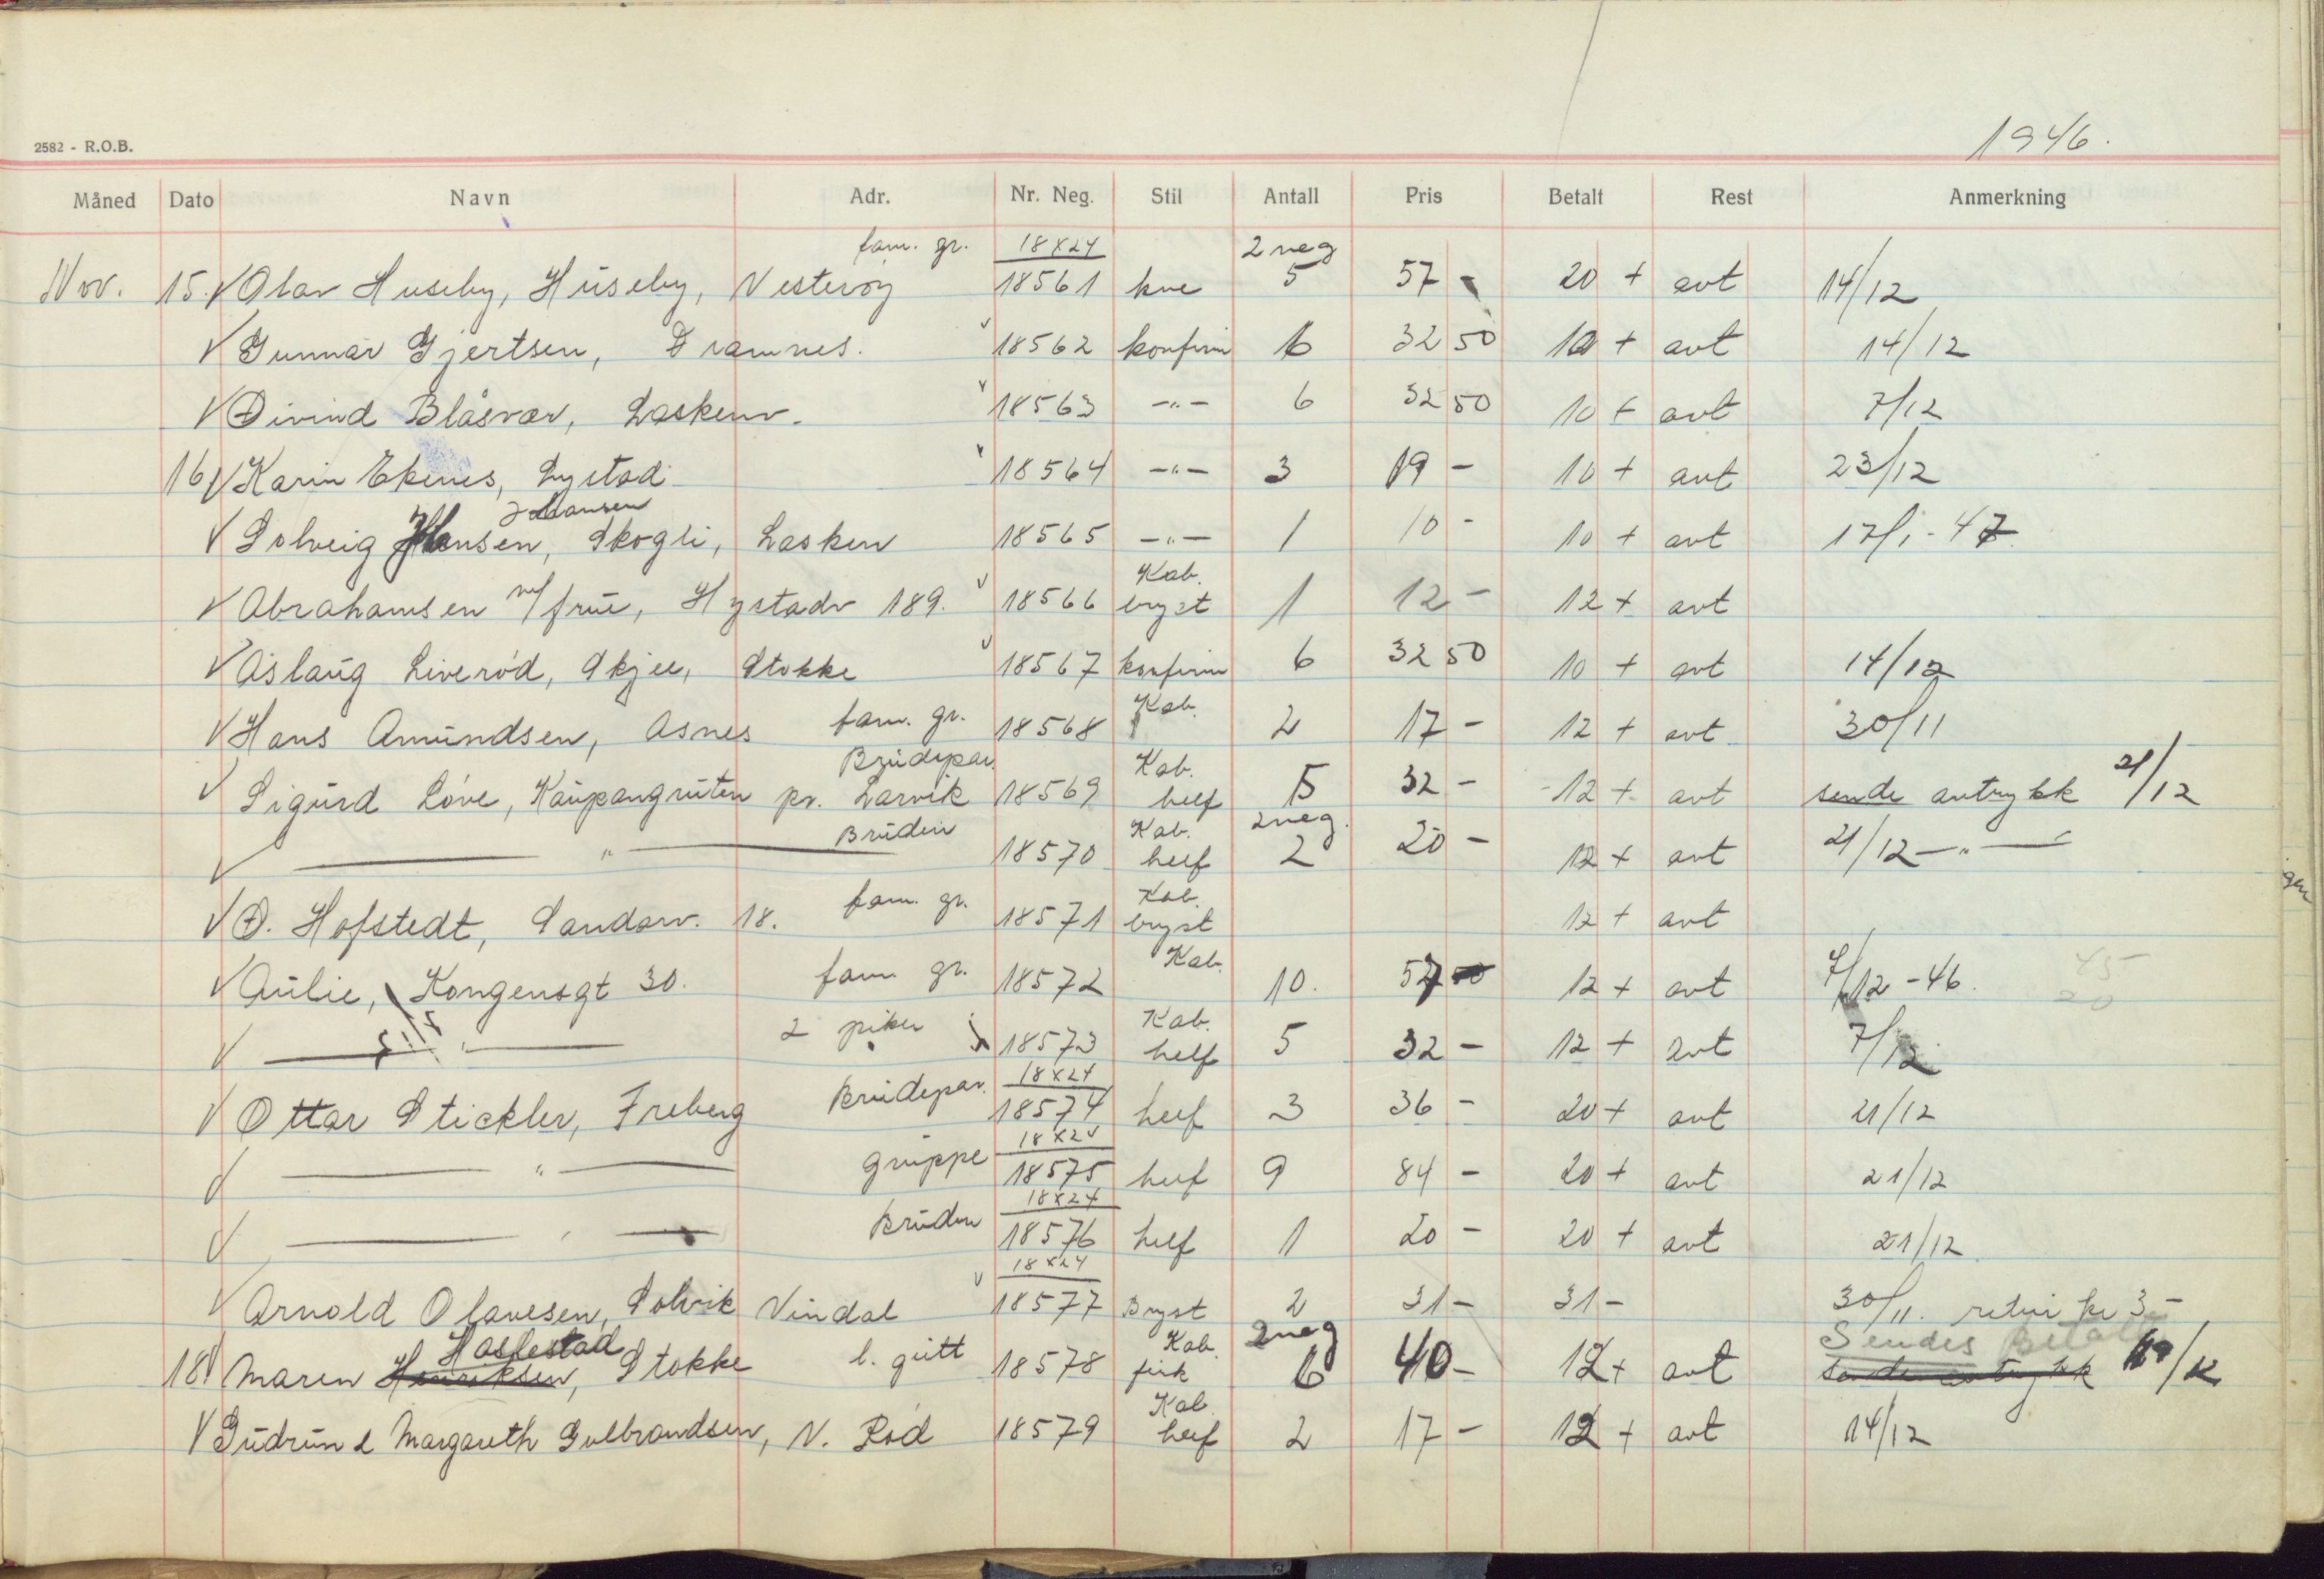 2582 - R.O.B.
1946.
Måned Dato Navn Adr. Nr. Neg. Stil Antall Pris Betalt Rest Anmerkning
fam. gr. 18x24 2 neg
Nov. 15. √ Olav Huseby, Huseby, Vesterøy 18561 kne 5 57 - 20 + avt 14/12
√ Gunnar Gjertsen, Framnes. √ 18562 konfirm 6 32 50 10 + avt 14/12
√ Øivind Blåsvær, Laskenv. √ 18563 -"- 6 32 50 10 + avt 7/12
16 √ Karin Ekenes, Lystad √ 18564 -"- 3 19 - 10 + avt 23/12
Johansen
√ Solveig Hansen, Skogli, Lasken 18565 -"- 1 10 - 10 + avt 17/1 - 47
Kab.
√ Abrahamsen m/frue, Hystadv 189. √ 18566 bryst 1 12 - 12 + avt
√ Aslaug Liverød, Skjee, Stokke √ 18567 konfirm 6 32 50 10 + avt 14/12
Kab.
√ Hans Amundsen, Asnes fam. gr. 18568 2 17 - 12 + avt 30/11
Brudepar. Kab.
√ Sigurd Løve, Kaupangruten pr. Larvik 18569 helf 5 32 - 12 + avt sende avtrykk 21/12
Bruden Kab. 2 neg.
√ " 18570 helf 2 20 - 12 + avt 21/12 -"-
Kab.
√ Ø. Hofstedt, Sandarv. 18. fam. gr. 18571 bryst 12 + avt
Kab.
√ Aulie, Kongensgt 30. fam. gr. 18572 10. 57 12 + avt 7/12 - 46. 45
20
√ " 2 piker 18573 Kab. helf 5 32 - 12 + avt 7/12
18x24
√ Ottar Stickler, Freberg Brudepar. 18574 helf 3 36 - 20 + avt 21/12
18x24
√ " gruppe 18575 helf 9 84 - 20 + avt 21/12
18x24
√ " Bruden 18576 helf 1 20 - 20 + avt 21/12
18x24
√ Arnold Olavesen, Solvik Vindal √ 18577 Bryst 2 31 - 31 - 30/11. retur kr 3 -
Haslestad Kab. 2 neg Sendes Betalt
18 √ Maren Henriksen, Stokke l. gutt 18578 6 40 - 12 + avt sende avtrykk 19/12
Kab.
√ Gudrun & Margareth Gulbrandsen, N. Rød 18579 helf 2 17 - 12 + avt 14/12